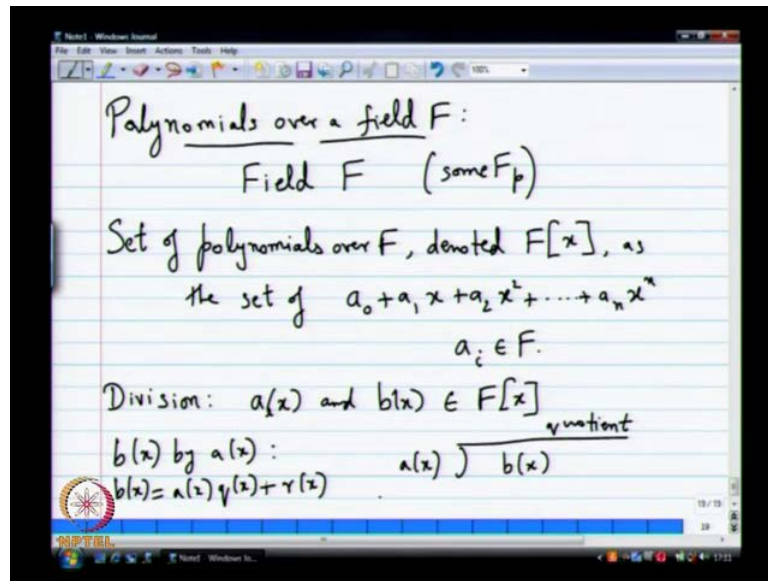 Note1 - Windows Journal
File Edit View Insert Actions Tools Help
100%
Polynomials over a field F :
Field F (some Fp)
Set of polynomials over F, denoted F[x], as
the set of a₀ + a₁ x + a₂ x² + ..... + aₙ xⁿ
aᵢ ∈ F.
Division: a(x) and b(x) ∈ F[x]
quotient
b(x) by a(x) : a(x) ) b(x)
b(x) = a(x) q(x) + r(x)
19 / 19
19
NPTEL
Note1 - Windows Jo...
17:11